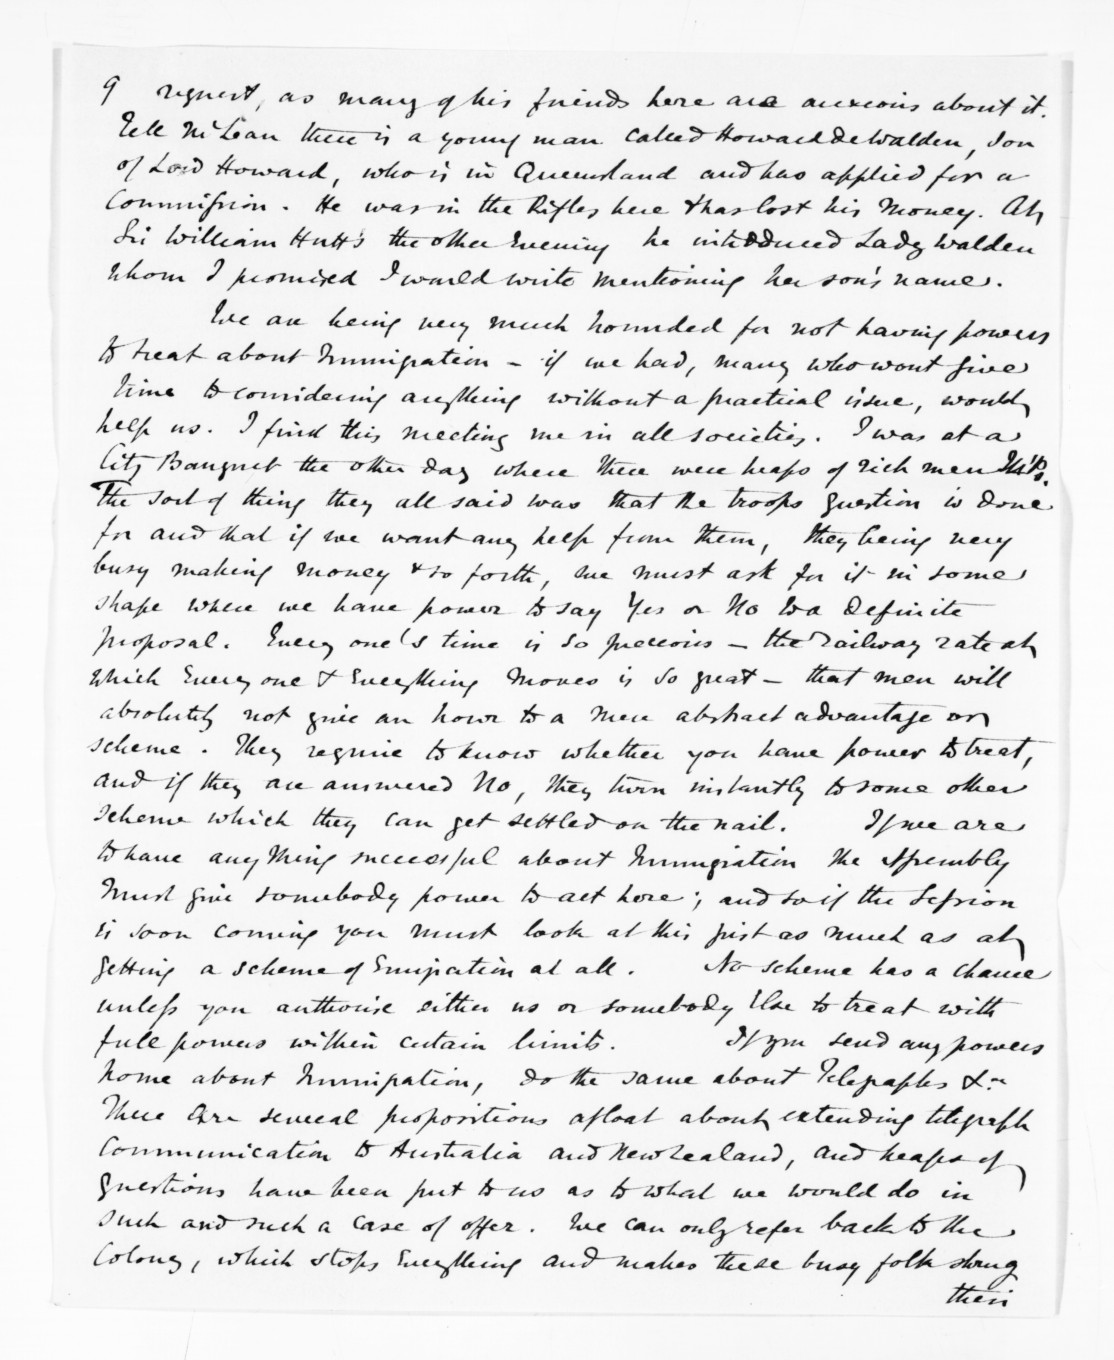 9 request, as many of his friends here are anxious about it.
Tell McLean there is a young man called Howard de Walden, son
of Lord Howard, who is in Queensland and has applied for a
Commission. He was in the Rifles here & has lost his money. At
Sir William Hutt's the other Evening he introduced Lady Walden
whom I promised I would write mentioning her son's name.
We are being very much hounded for not having powers
to treat about Immigration - if we had, many who wont give
time to considering anything without a practical issue, would
help us. I find this meeting me in all societies. I was at a
City Banquet the other day where there were heaps of rich men
The sort of thing they all said was that the troops question is done
for and that if we want any help from them, they being very
busy making money & so forth, we must ask for it in some
shape where we have power to say Yes or No to a definite
proposal. Every one's time is so precious - the railway rate at
which Every one & Everything moves is so great - that men will
absolutely not give an hour to a mere abstract advantage or
scheme. They require to know whether you have power to treat,
and if they are answered No, they turn instantly to some other
scheme which they can get settled on the nail. If we are
to have anything successful about Immigration the Assembly
must give somebody power to act here; and so if the Session
is soon coming you must look at this just as much as at
getting a scheme of Emigration at all. No scheme has a chance
unless you authorise either us or somebody Else to treat with
full powers within certain limits. If you send any powers
home about Immigration, do the same about Telegraphs &c
There are several propositions afloat about extending telegraph
Communication to Australia and New Zealand, and heaps of
questions have been put to us as to what we would do in
such and such a case of offer. We can only refer back to the
Colony, which stops Everything and makes these busy folk shrug
their